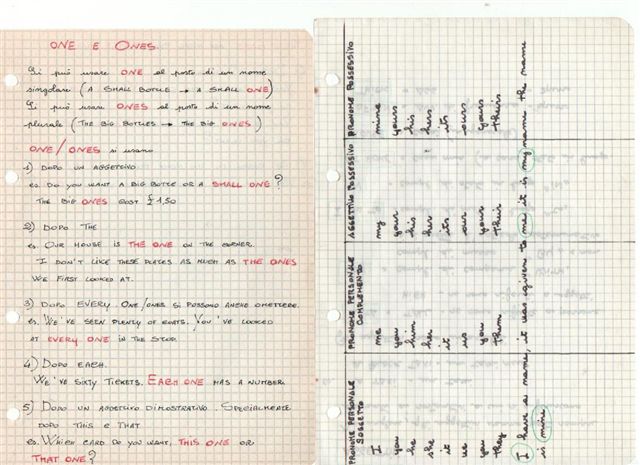 ONE E ONES
Si può usare ONE al posto di un nome
singolare (A SMALL BOTTLE → A SMALL ONE)
Si può usare ONES al posto di un nome
plurale (THE BIG BOTTLES → THE BIG ONES)
ONE/ONES si usano
1) DOPO UN AGGETTIVO
es. DO YOU WANT A BIG BOTTLE OR A SMALL ONE?
THE BIG ONES COST £1,50
2) DOPO THE
es. OUR HOUSE IS THE ONE ON THE CORNER.
I DON'T LIKE THESE PLACES AS MUCH AS THE ONES
WE FIRST LOOKED AT.
3) DOPO EVERY. ONE/ONES SI POSSONO ANCHE OMETTERE.
es. WE'VE SEEN PLENTY OF COATS. YOU'VE LOOKED
AT EVERY ONE IN THE SHOP.
4) DOPO EACH.
WE'VE SIXTY TICKETS. EACH ONE HAS A NUMBER.
5) DOPO UN AGGETTIVO DIMOSTRATIVO. SPECIALMENTE
DOPO THIS E THAT
es. WHICH CARD DO YOU WANT, THIS ONE OR
THAT ONE?
PRONOME PERSONALE SOGGETTO
I
you
he
she
it
we
you
they
PRONOME PERSONALE COMPLEMENTO
me
you
him
her
it
us
you
them
AGGETTIVO POSSESSIVO
my
your
his
her
its
our
your
their
PRONOME POSSESSIVO
mine
yours
his
hers
its
ours
yours
theirs
I have a name, it was given to me it is my name the name
is mine